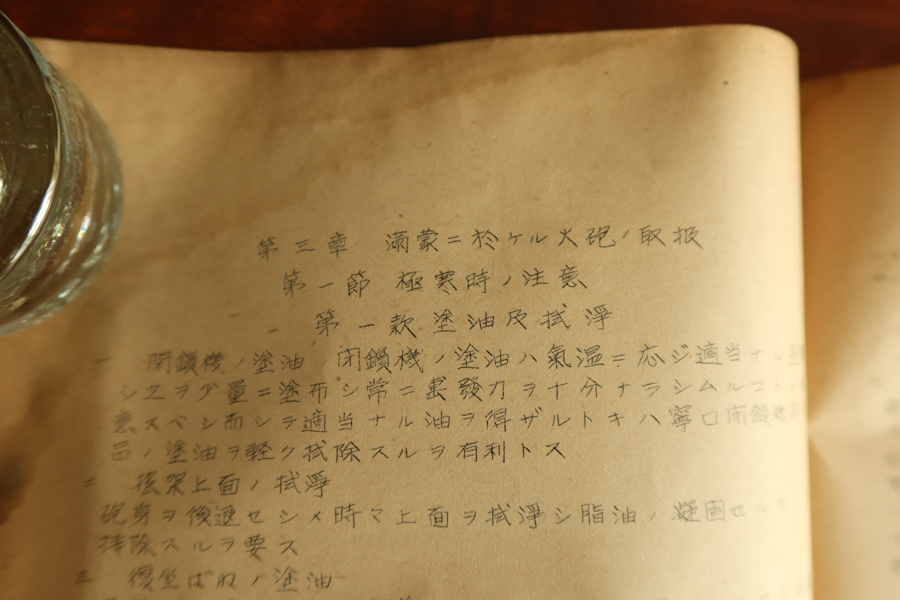 第三章 満蒙ニ於ケル火砲ノ取扱
第一節 極寒時ノ注意
第一款 塗油及拭淨
一 閉鎖機ノ塗油 閉鎖機ノ塗油ハ氣温ニ応ジ適当ナル
シ之ヲ少量ニ塗布シ常ニ 發力ヲ十分ナラシムルコト
意スベシ而シテ適当ナル油ヲ得ザルトキハ寧ロ閉鎖機
ノ塗油ヲ軽ク拭除スルヲ有利トス
二 揺架上面ノ拭淨
砲身ヲ後退セシメ時々上面ヲ拭淨シ脂油ノ凝固セル
排除スルヲ要ス
三 復坐ばねノ塗油